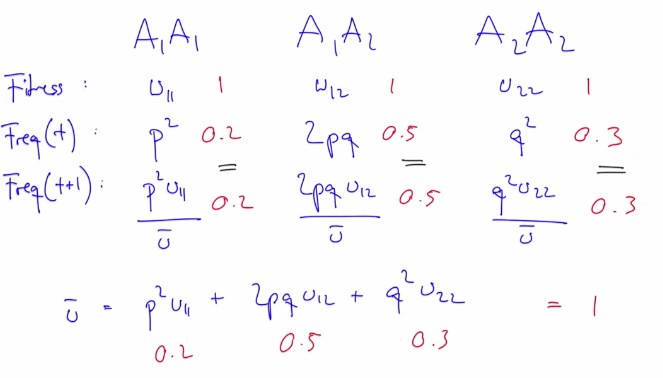 A₁A₁ A₁A₂ A₂A₂
Fitness : ω₁₁ 1 ω₁₂ 1 ω₂₂ 1
Freq(t) : p² 0.2 2pq 0.5 q² 0.3
= = =
Freq(t+1) : p²ω₁₁/ω̄ 0.2 2pqω₁₂/ω̄ 0.5 q²ω₂₂/ω̄ 0.3
ω̄ = p²ω₁₁ + 2pqω₁₂ + q²ω₂₂ = 1
0.2 0.5 0.3